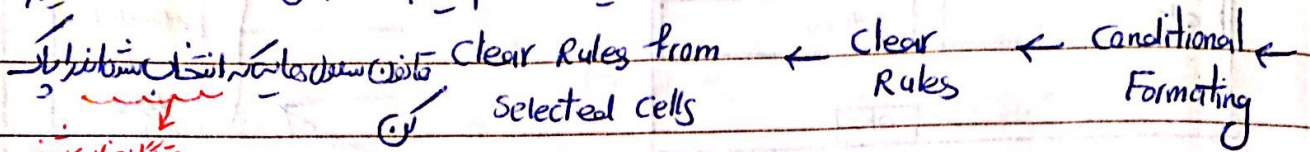 ← Conditional Formating ← Clear Rules ← Clear Rules from Selected Cells قانون سلول هاییکه انتخاب شده اند را پاک
کن